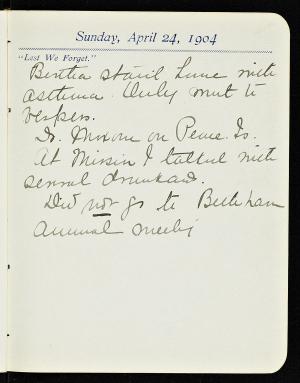 Sunday, April 24, 1904
"Lest We Forget."
Bertha staid home with
asthma. Only went to
vespers.
Dr. on Penn. Is.
At Mission I talked with
several drunkards.
Did not go to Bethham
Annual meeting